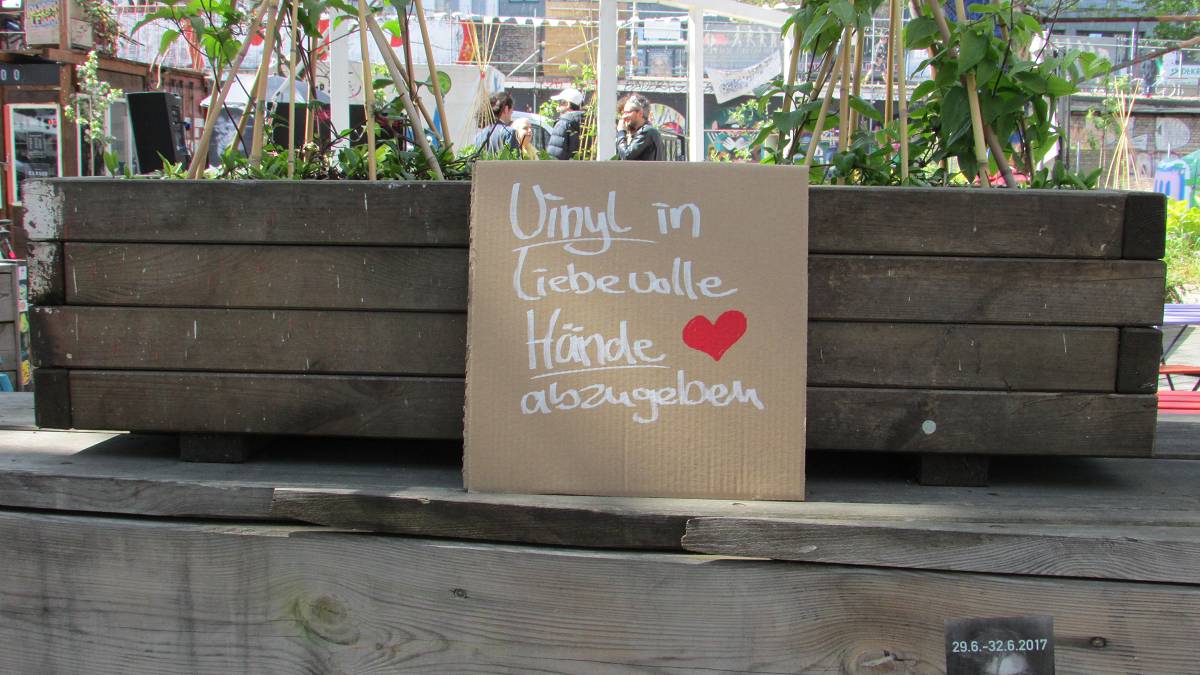 Vinyl in
Liebevolle
Hände
abzugeben
29.6.-32.6.2017